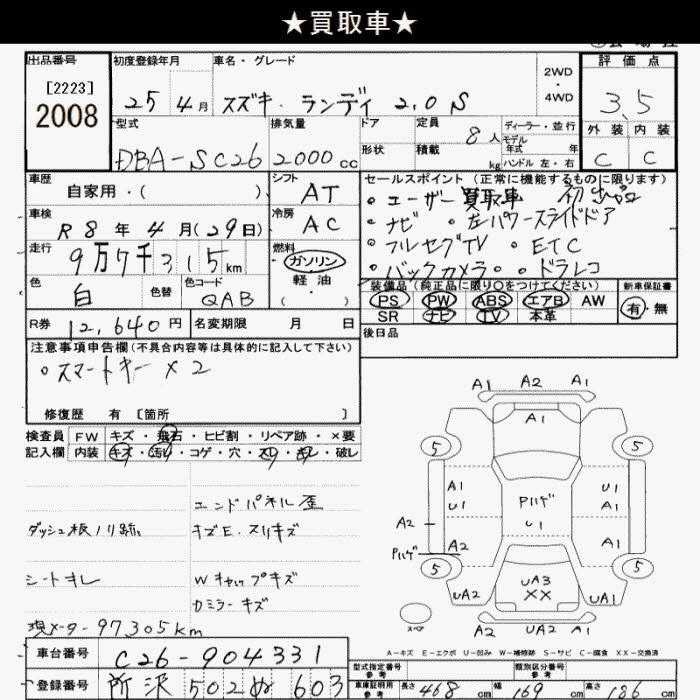 ★買取車★
出品番号 初度登録年月 車名・グレード 2WD・4WD 評価点
[2223]
2008
25年4月 スズキ・ランディ 2.0 S 3.5
型式 排気量 ドア 定員 8人 ディーラー・並行 外装 内装
DBA-SC26 2000cc 形状 積載 kg モデル年式 年 ハンドル 左・右 C C
車歴 シフト セールスポイント(正常に機能するものに限ります)
自家用・( ) AT ・ユーザー買取車 初出品
車検 冷房 ・ナビ ・左パワースライドドア
R8年4月(29日) AC ・フルセグTV ・ETC
走行 燃料 ・バックカメラ ・ドラレコ
9万7千315km ガソリン・軽油・( )
色 色替 色コード 装備品(純正品に限り○をつけてください) 新車保証書
白 QAB PS PW ABS エアB AW 有・無
SR ナビ TV 本革
R券 12,640円 名変期限 月 日 後日品
注意事項申告欄(不具合内容等は具体的に記入して下さい)
・スマートキー×2
修復歴 有 [箇所 ]
検査員 FW キズ・飛石・ヒビ割・リペア跡・×要
記入欄 内装 キズ・汚れ・コゲ・穴・スレ・キレ・破レ
エンドパネル歪
ダッシュ板ノリ跡 キズE・スリキズ
シートキレ Wキャップキズ
カミラーキズ
現メーター97305km
A1 A2 A1
A1
5 5
A1 U1 A1
U1 Pハゲ A1
A2 U1
Pハゲ A2 A1
5 5
UA2 UA3 UA1
XX
スペア A2 UA2 A1
A-キズ E-エクボ U-凹み W-補修跡 S-サビ C-腐食 XX-交換済
車台番号 C26-904331 型式指定番号 参考 類別区分番号 参考
登録番号 所沢 502 ぬ 603 車庫証明用 参考 長さ 468cm 幅 169cm 高さ 186cm